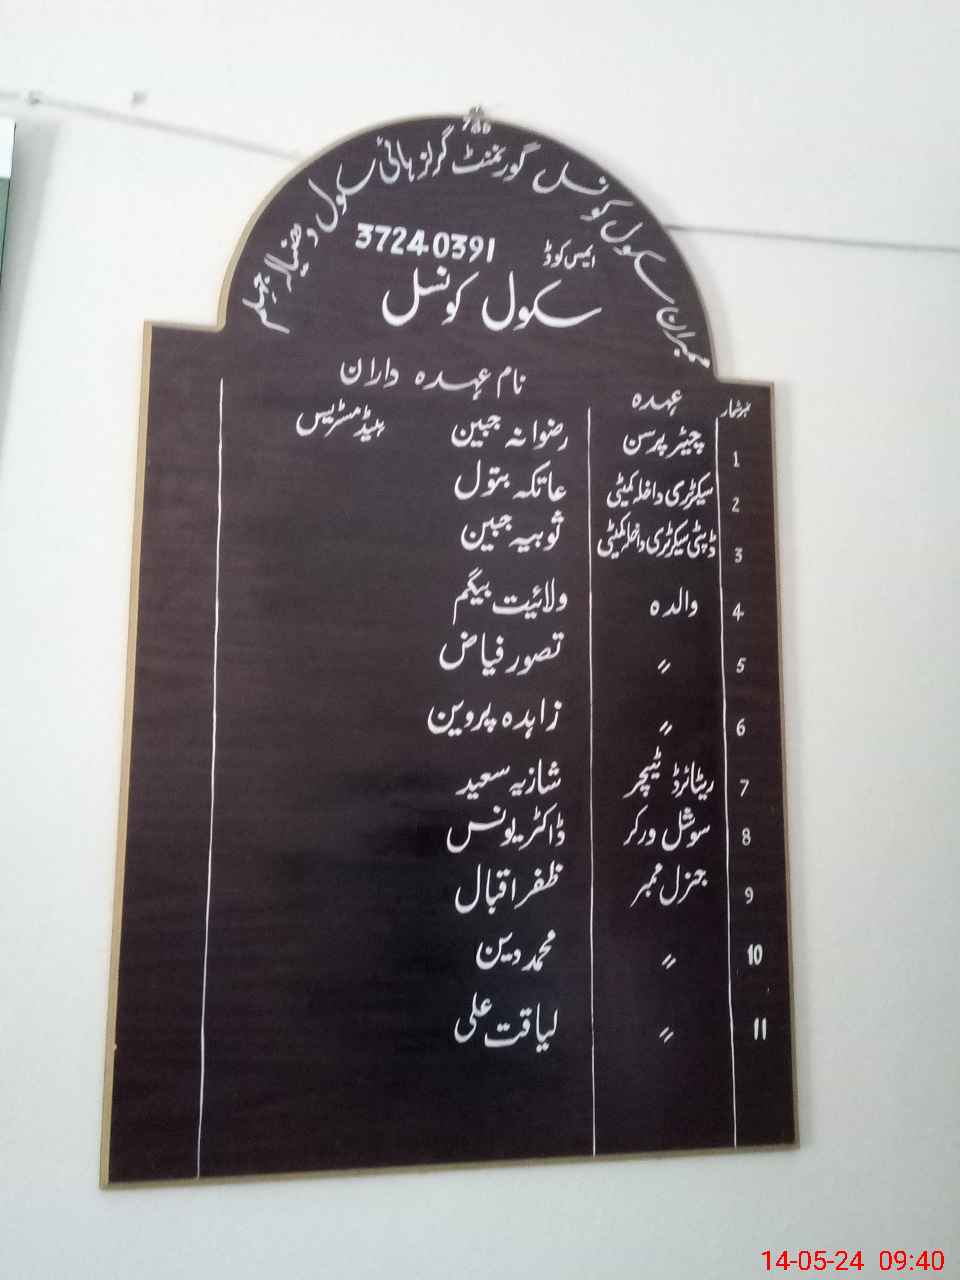 786
ممبران سکول کونسل گورنمنٹ گرلز ہائی سکول دھنیالہ جہلم
ایمس کوڈ 37240391
سکول کونسل
نمبرشمار عہدہ نام عہدہ داران
1 چیئر پرسن رضوانہ جبین ہیڈ مسٹریس
2 سیکرٹری داخلہ کمیٹی عاتکہ بتول
3 ڈپٹی سیکرٹری داخلہ کمیٹی ثوبیہ جبین
4 والدہ ولائیت بیگم
5 〃 تصور فیاض
6 〃 زاہدہ پروین
7 ریٹائرڈ ٹیچر شازیہ سعید
8 سوشل ورکر ڈاکٹر یونس
9 جنرل ممبر ظفر اقبال
10 〃 محمد دین
11 〃 لیاقت علی
14-05-24 09:40